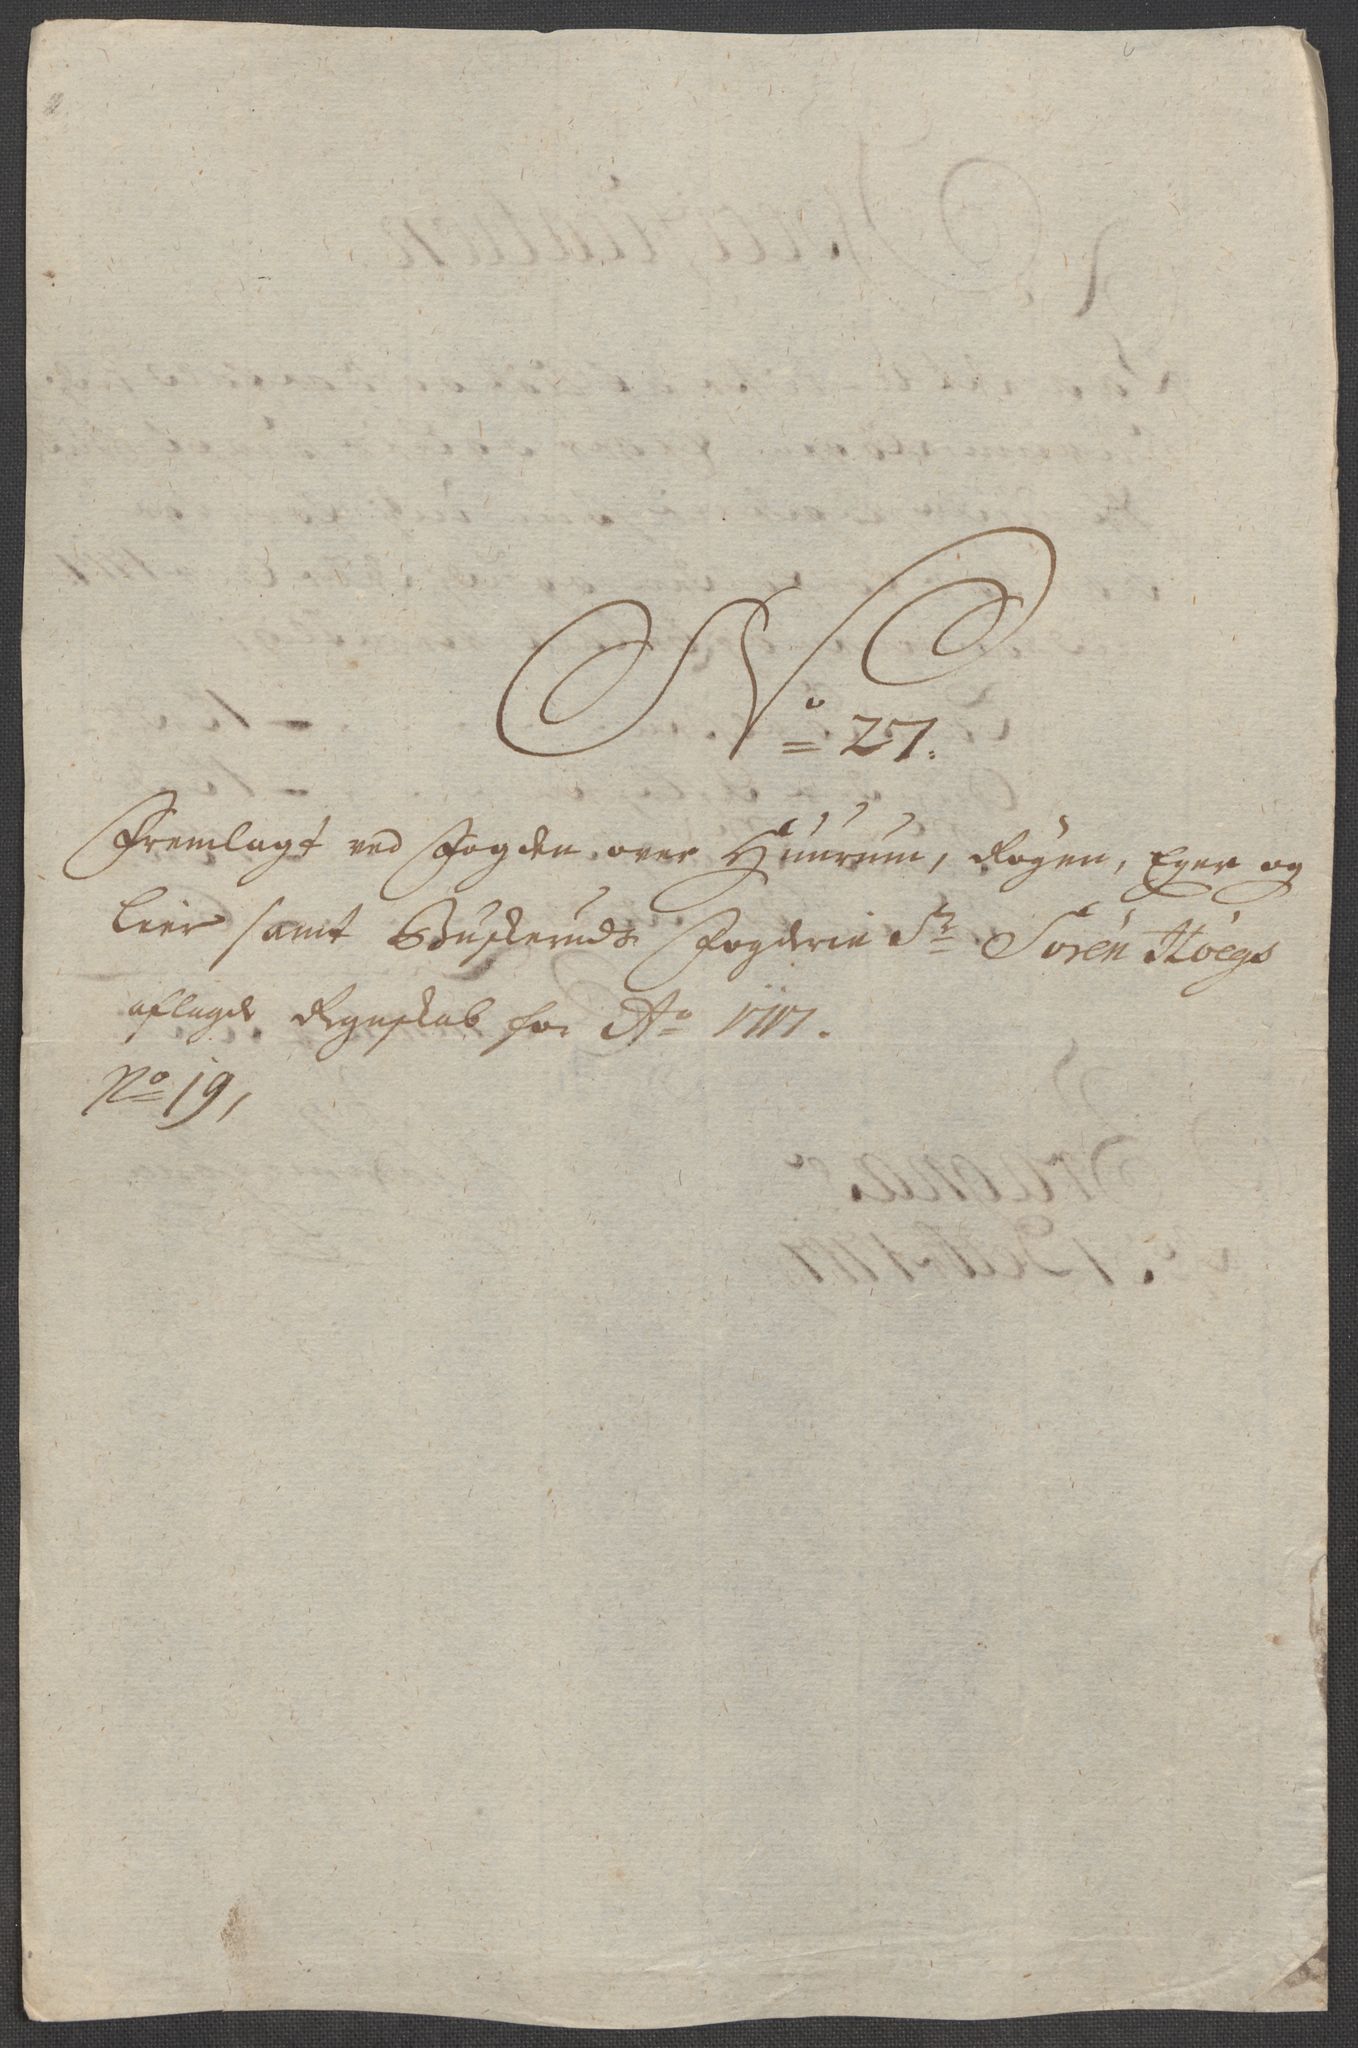 No 27.
Fremlagt ved Fogden over Huurum, Røgen, Eger og
Lier samt Buskeruds Fogderie Sr Søren Hoegs
aflagde Regnskab for Ao 1717.
No 19,